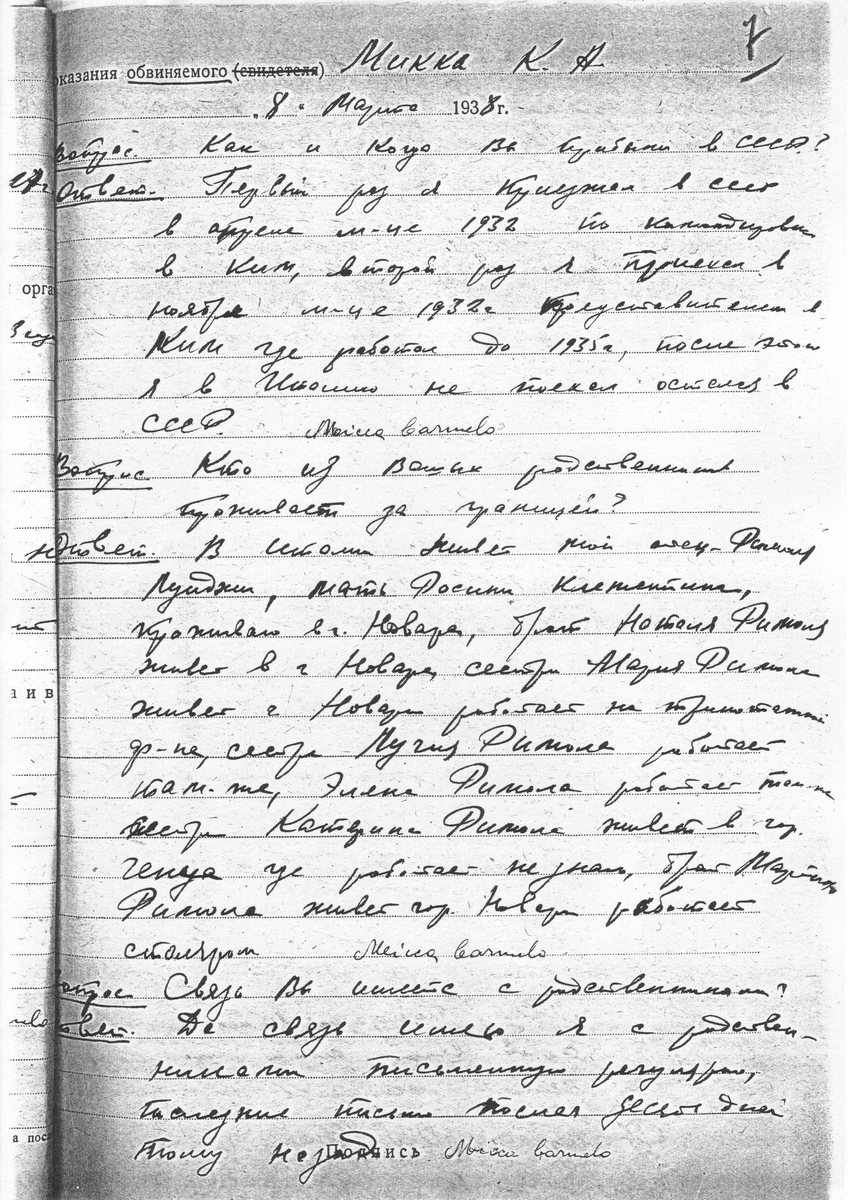 7
оказания обвиняемого (свидетеля) Микка К. А
„8“ Марта 1938 г.
Вопрос. Как и когда Вы прибыли в СССР?
Ответ. Первый раз я приезжал в СССР
в апреле м-це 1932 по командировке
в Ким, второй раз я приехал в
ноябре м-це 1932 г представителем в
Ким где работал до 1935 г, после этого
я в Италию не поехал остался в
СССР. Micca Carmelo
Вопрос Кто из Ваших родственников
проживает за границей?
Ответ. В Италии живет мой отец- Римола
Луиджи, мать Росина Клементина,
проживаю в г. Новара, брат Наталя Римола
живет в г Новара, сестра Мария Римола
живет г Новара работает на трикотажной
ф-ке, сестра Лучия Римола работает
там-же, Элена Римола работает там-же
сестра Катерина Римола живет в гор.
Генуа где работает не знаю, брат Мартин
Римола живет гор. Новара работает
столяром Micca Carmelo
Вопрос Связь Вы имеете с родственниками?
Ответ. Да связь имею я с родствен-
никами письменную
последнее письмо послал десять дней
тому назад Подпись Micca Carmelo
орга
а и в
а посл